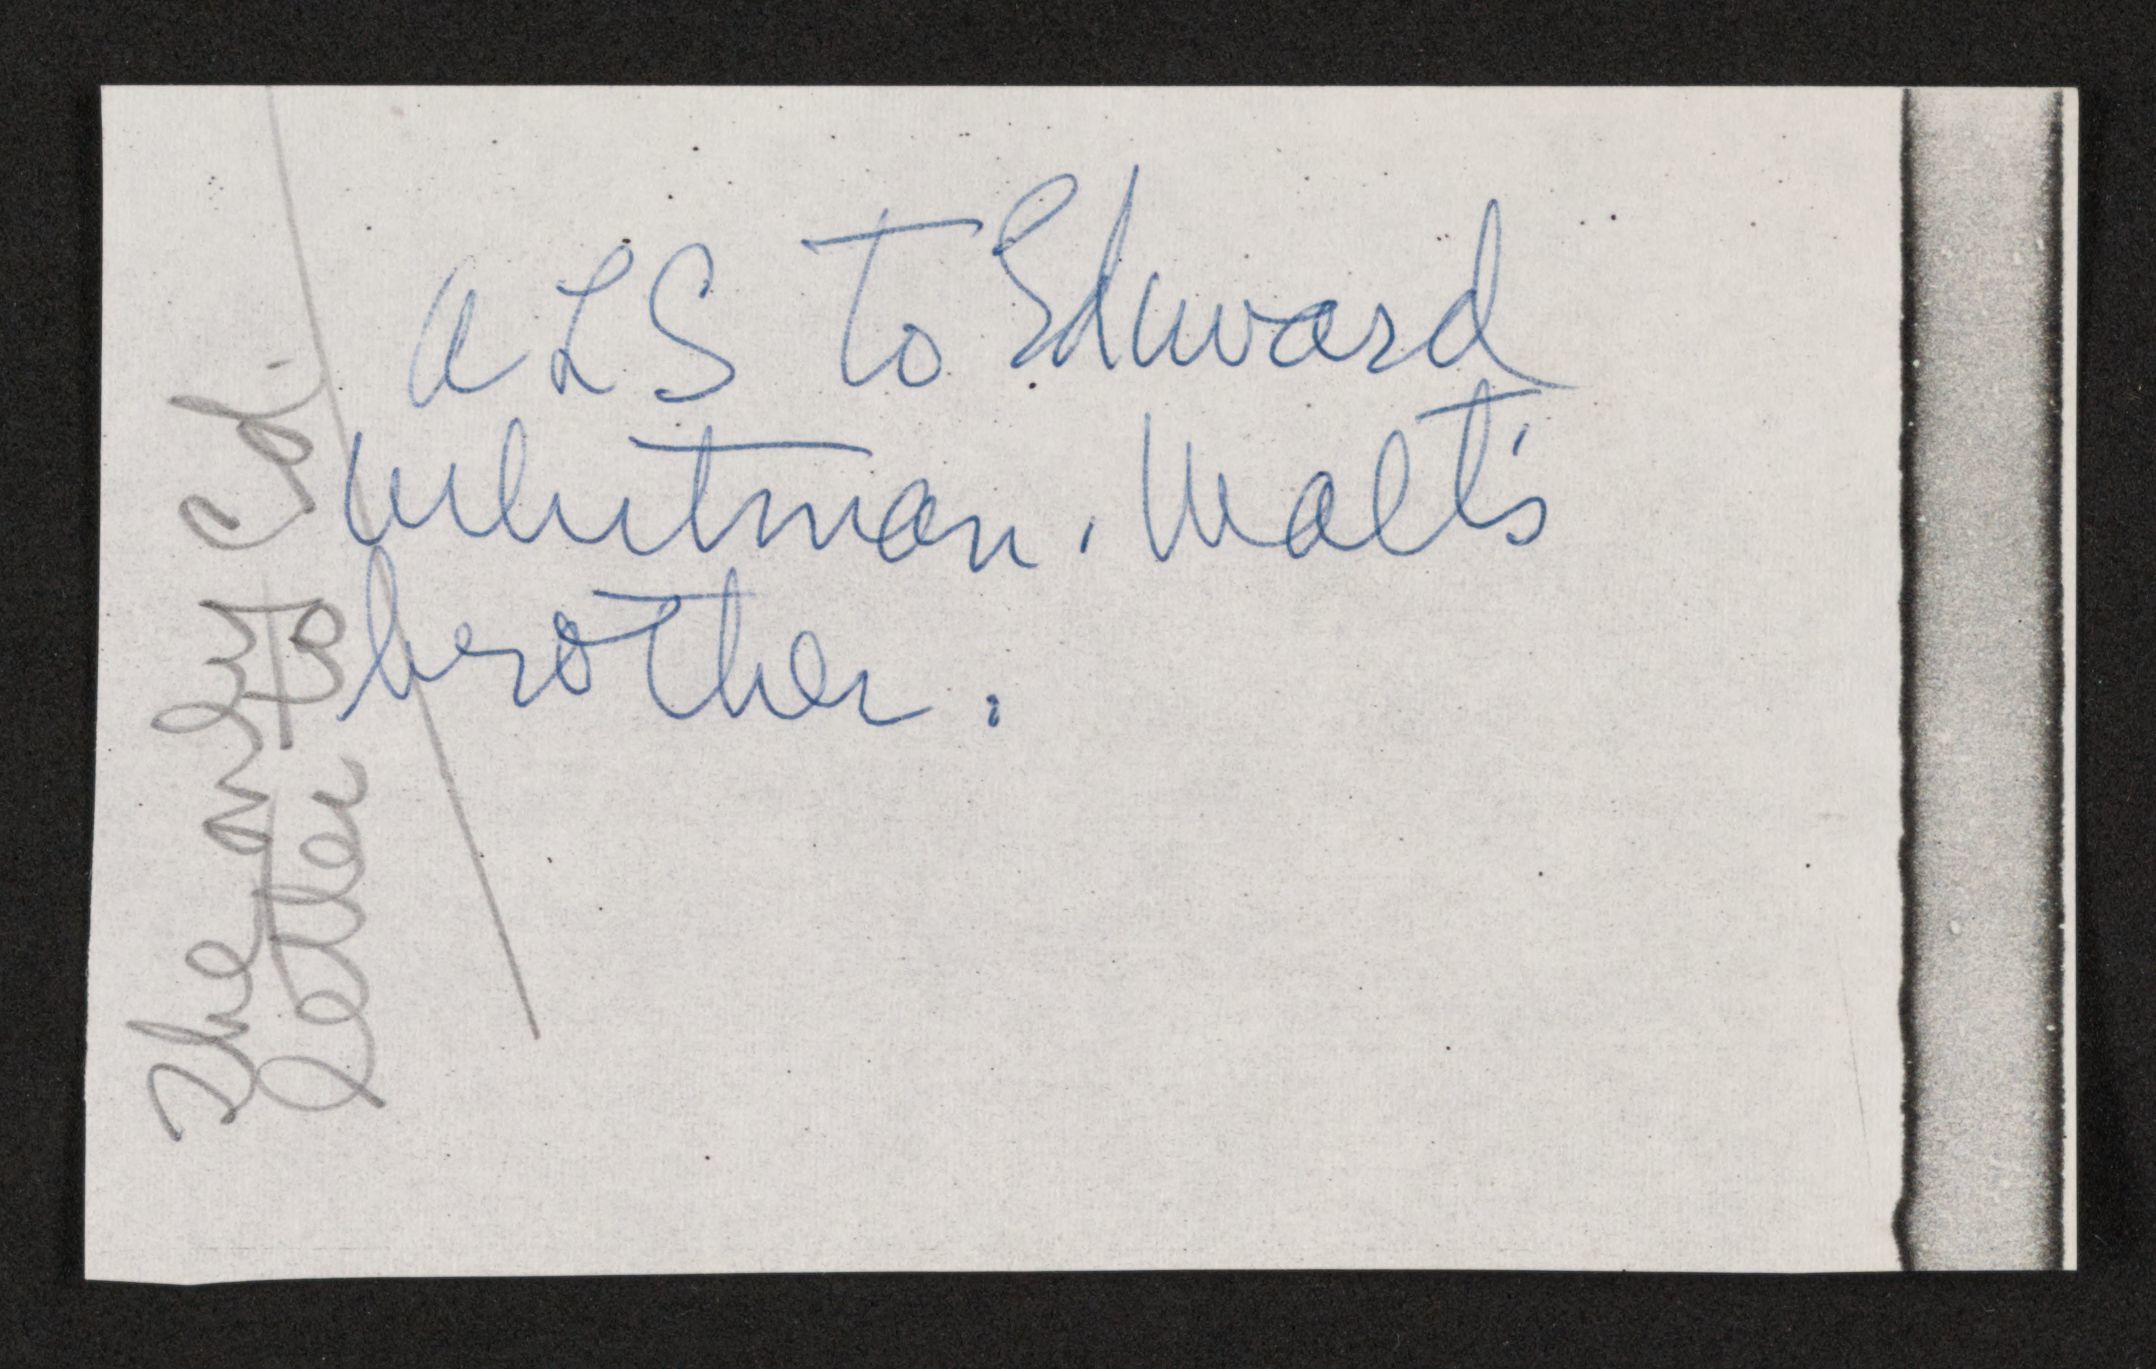 ALS to Edward
Whitman, Walt's
brother.
The only
letter to Ed.